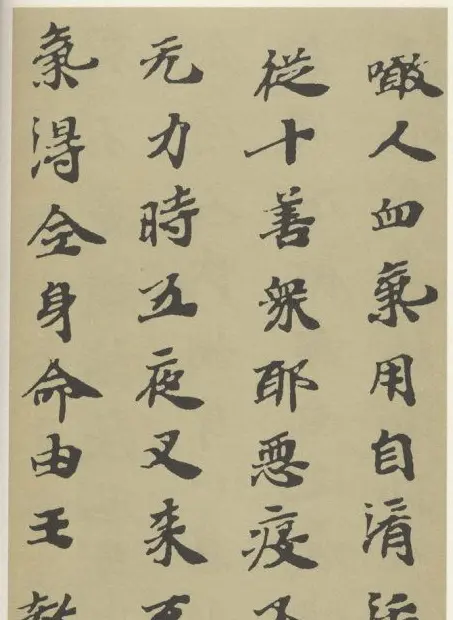 噉人血氣用自濟
從十善衆耶惡疫
无力時五夜叉来
氣得全身命由王